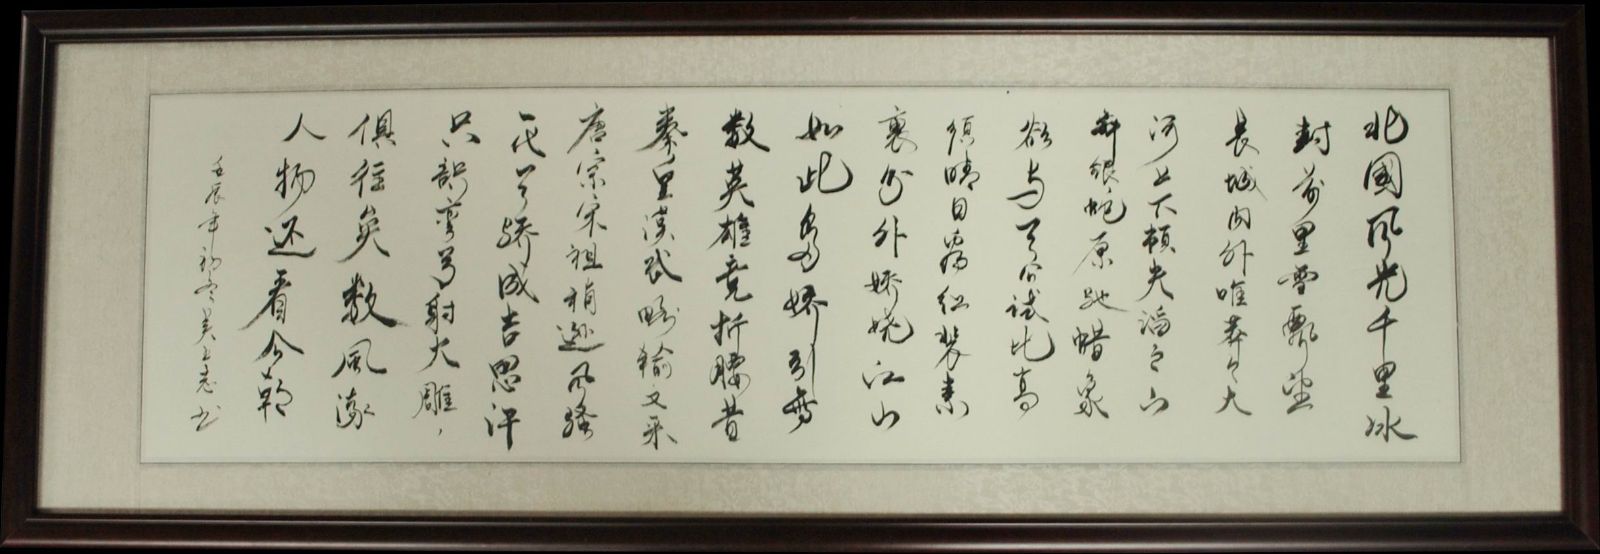 北國风光千里冰
封萬里雪飄望
長城内外唯莽々大
河上下頓失滔々山
舞银蛇原驰蜡象
欲与天公試比高
须晴日看红装素
裹分外娇娆江山
如此多娇引無
数英雄竞折腰昔
秦皇漢武略输文采
唐宗宋祖稍逊风骚
一代天骄成吉思汗
只識彎弓射大雕，
俱往矣数風流
人物还看今朝
壬辰年初冬吴志书